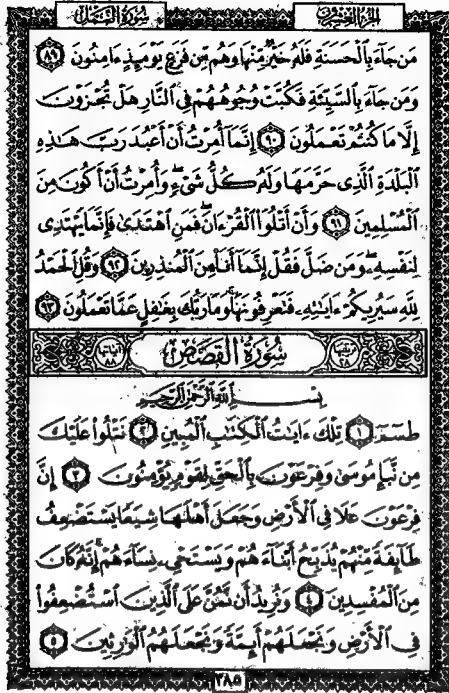 الجزء العشرون
سورة النمل
مَن جَآءَ بِٱلْحَسَنَةِ فَلَهُۥ خَيْرٌ مِّنْهَا وَهُم مِّن فَزَعٍ يَوْمَئِذٍ ءَامِنُونَ ٨٩
وَمَن جَآءَ بِٱلسَّيِّئَةِ فَكُبَّتْ وُجُوهُهُمْ فِى ٱلنَّارِ هَلْ تُجْزَوْنَ
إِلَّا مَا كُنتُمْ تَعْمَلُونَ ٩٠ إِنَّمَآ أُمِرْتُ أَنْ أَعْبُدَ رَبَّ هَـٰذِهِ
ٱلْبَلْدَةِ ٱلَّذِى حَرَّمَهَا وَلَهُۥ كُلُّ شَىْءٍ ۖ وَأُمِرْتُ أَنْ أَكُونَ مِنَ
ٱلْمُسْلِمِينَ ٩١ وَأَنْ أَتْلُوَا۟ ٱلْقُرْءَانَ ۖ فَمَنِ ٱهْتَدَىٰ فَإِنَّمَا يَهْتَدِى
لِنَفْسِهِۦ ۖ وَمَن ضَلَّ فَقُلْ إِنَّمَآ أَنَا۠ مِنَ ٱلْمُنذِرِينَ ٩٢ وَقُلِ ٱلْحَمْدُ
لِلَّهِ سَيُرِيكُمْ ءَايَـٰتِهِۦ فَتَعْرِفُونَهَا ۚ وَمَا رَبُّكَ بِغَـٰفِلٍ عَمَّا تَعْمَلُونَ ٩٣
سُورَةُ القَصَصِ
آياتها ٨٨
بِسْمِ ٱللَّهِ ٱلرَّحْمَـٰنِ ٱلرَّحِيمِ
طسٓمٓ ١ تِلْكَ ءَايَـٰتُ ٱلْكِتَـٰبِ ٱلْمُبِينِ ٢ نَتْلُوا۟ عَلَيْكَ
مِن نَّبَإِ مُوسَىٰ وَفِرْعَوْنَ بِٱلْحَقِّ لِقَوْمٍ يُؤْمِنُونَ ٣ إِنَّ
فِرْعَوْنَ عَلَا فِى ٱلْأَرْضِ وَجَعَلَ أَهْلَهَا شِيَعًا يَسْتَضْعِفُ
طَآئِفَةً مِّنْهُمْ يُذَبِّحُ أَبْنَآءَهُمْ وَيَسْتَحْىِۦ نِسَآءَهُمْ ۚ إِنَّهُۥ كَانَ
مِنَ ٱلْمُفْسِدِينَ ٤ وَنُرِيدُ أَن نَّمُنَّ عَلَى ٱلَّذِينَ ٱسْتُضْعِفُوا۟
فِى ٱلْأَرْضِ وَنَجْعَلَهُمْ أَئِمَّةً وَنَجْعَلَهُمُ ٱلْوَٰرِثِينَ ٥
٣٨٥